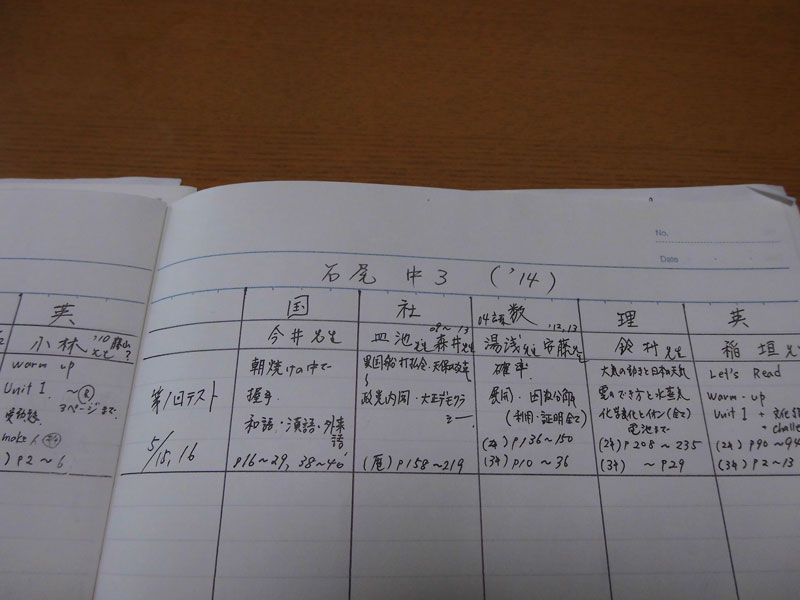 No.
Date
石尾 中3 ('14)
英
国
社
数
理
英
小林
今井先生
皿池先生 森井先生
湯浅先生 安藤先生
鈴村先生
稲垣先
'12,13
warm up
Unit 1 ~
3ページまで
make A
) P2~6
第1回テスト
5/15, 16
朝焼けの中で
握手
和語・漢語・外来語
P16~29, 38~40
異国船打払令・天保の改革
~
政党内閣・大正デモクラシー
(歴) P158~219
確率
展開・因数分解
(利用・証明含て)
(2年) P136~150
(3年) P10~36
大気の動きと日本の天気
雲のでき方と水蒸気
化学変化とイオン(含て)
電池まで
(2年) P208~235
(3年) ~P29
Let's Read
Warm-up
Unit 1 +
+ challe
(2年) P90~94
(3年) P2~13